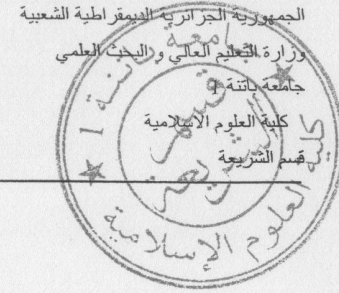 الجمهورية الجزائرية الديمقراطية الشعبية
وزارة التعليم العالي و البحث العلمي
جامعة باتنة 1
كلية العلوم الاسلامية
قسم الشريعة
جامعة باتنة 1
كلية العلوم الإسلامية
قسم الشريعة